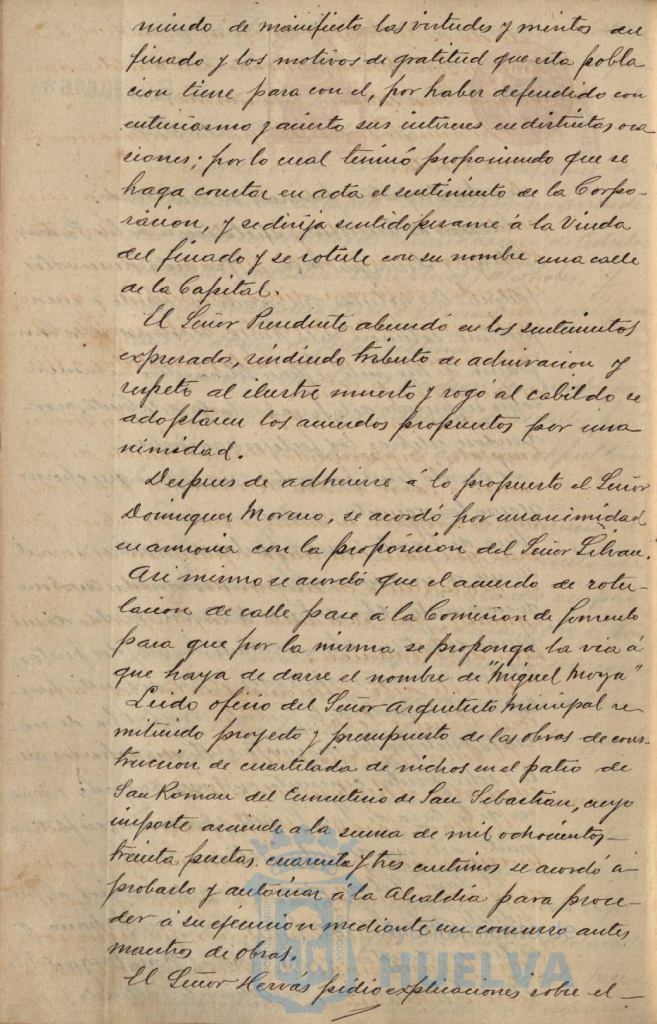 niendo de manifiesto las virtudes y méritos del
finado y los motivos de gratitud que esta pobla
cion tiene para con el, por haber defendido con
entusiasmo y acierto sus intereses en distintas oca
siones; por lo cual terminó proponiendo que se
haga constar en acta el sentimiento de la Corpo-
racion, y se dirija sentido pesame á la Viuda
del finado y se rotule con su nombre una calle
de la Capital.
El Señor Presidente abundó en los sentimientos
expresados, rindiendo tributo de admiracion y
respeto al ilustre muerto y rogó al cabildo se
adoptaren los acuerdos propuestos por una
nimidad.
Despues de adherirse á lo propuesto el Señor
Dominguez Moreno, se acordó por unanimidad
en armonia con la proposicion del Señor Lilvan.
Asi mismo se acordó que el acuerdo de rotu-
lacion de calle pase á la Comision de fomento
para que por la misma se proponga la via á
que haya de darse el nombre de "Miguel Moya"
Leido oficio del Señor Arquitecto Municipal re
mitiendo proyecto y presupuesto de las obras de cons-
truccion de cuartelada de nichos en el patio de
San Roman del Cementerio de San Sebastian, cuyo
importe asciende a la suma de mil ochocientos
treinta pesetas cuarenta y tres centimos se acordó a
probarlo y autorizar á la Alcaldia para proce-
der á su ejecucion mediante un concurso antes
maestros de obras.
El Señor Hervás pidio explicaciones sobre el
HUELVA